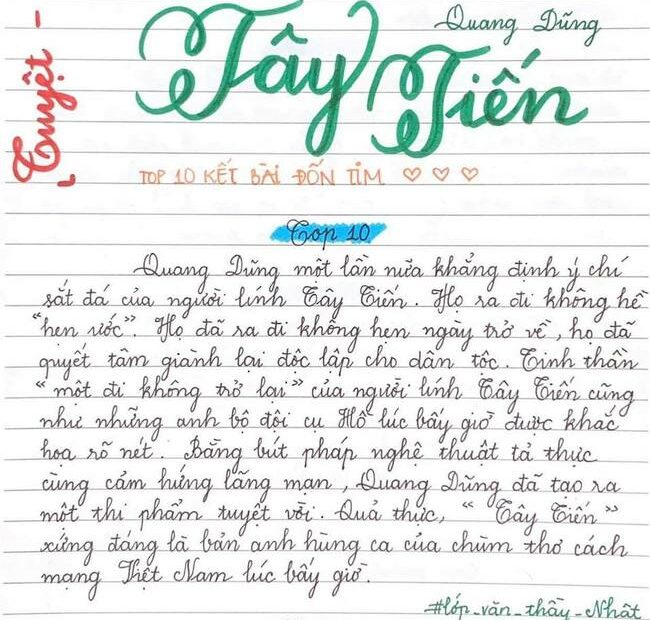 Quang Dũng
Tây Tiến
- Tuyệt -
TOP 10 KẾT BÀI ĐỐN TIM ♡ ♡ ♡
Top 10
Quang Dũng một lần nữa khẳng định ý chí
sắt đá của người lính Tây Tiến. Họ ra đi không hề
"hẹn ước". Họ đã ra đi không hẹn ngày trở về, họ đã
quyết tâm giành lại độc lập cho dân tộc. Tinh thần
"một đi không trở lại" của người lính Tây Tiến cũng
như những anh bộ đội cụ Hồ lúc bấy giờ được khắc
họa rõ nét. Bằng bút pháp nghệ thuật tả thực
cùng cảm hứng lãng mạn, Quang Dũng đã tạo ra
một thi phẩm tuyệt vời. Quả thực, "Tây Tiến"
xứng đáng là bản anh hùng ca của chùm thơ cách
mạng Việt Nam lúc bấy giờ.
#lớp_văn_thầy_Nhật